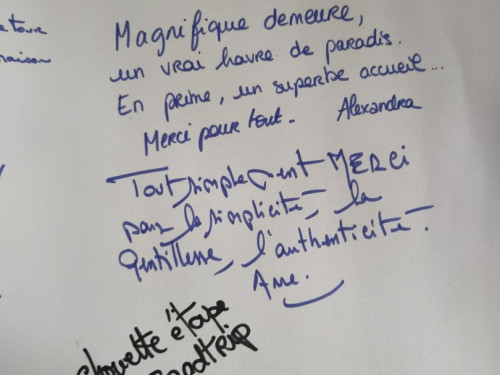 maison
Magnifique demeure,
un vrai havre de paradis.
En prime, un superbe accueil...
Merci pour tout. Alexandra
Tout simplement MERCI
pour la simplicité, la
Gentillesse, l'authenticité.
Anne.
chouette étape
roadtrip